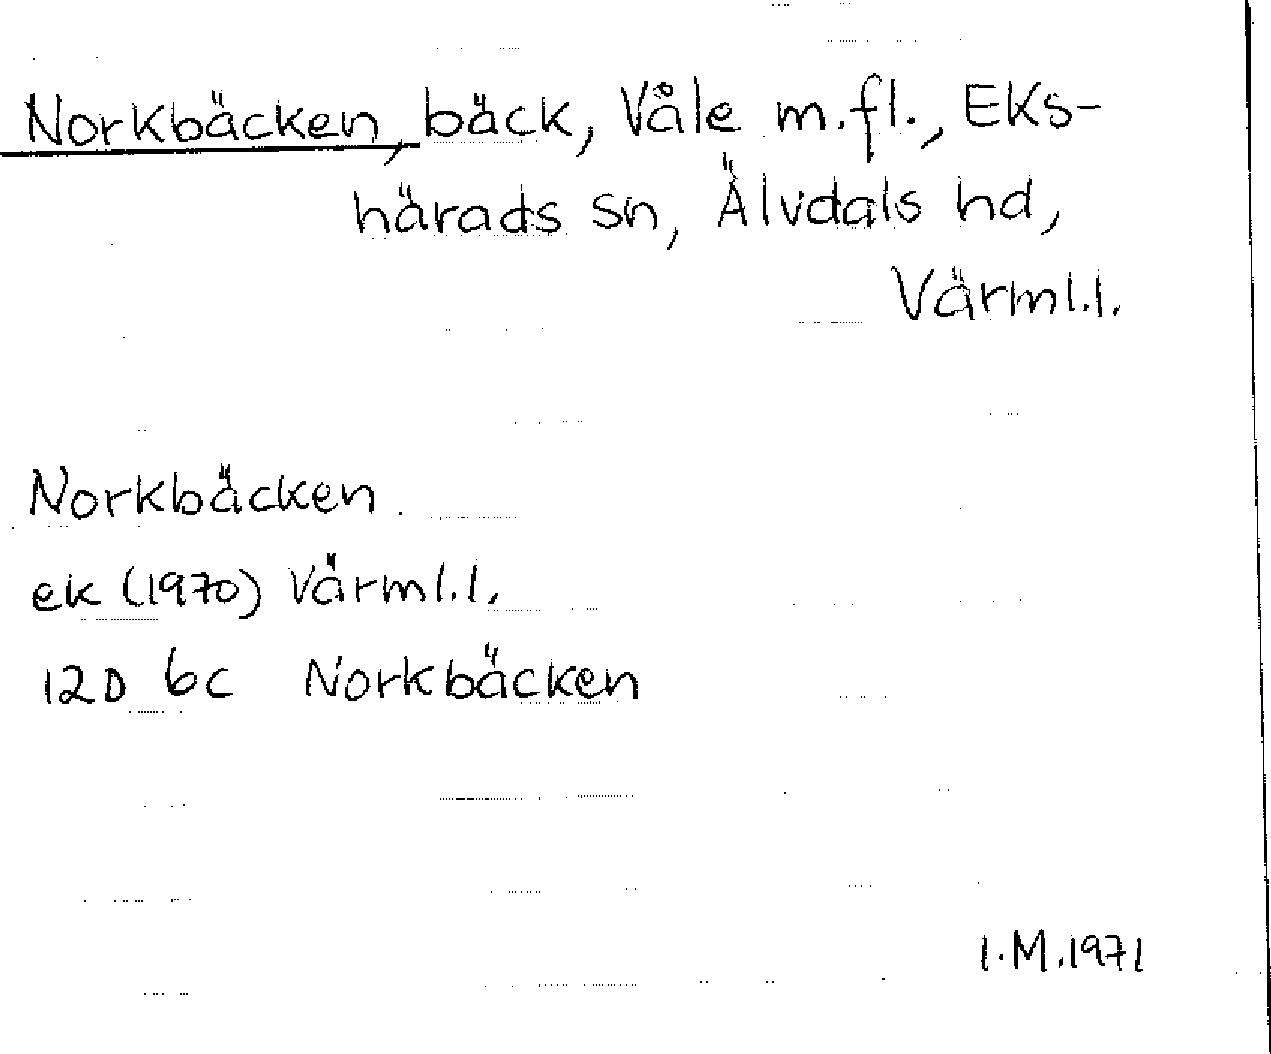 Norkbäcken, bäck, Våle m.fl., Eks-
härads sn, Älvdals hd,
Värml.l.
Norkbäcken.
ek (1970) Värml.l.
12D 6c Norkbäcken
I.M.1971